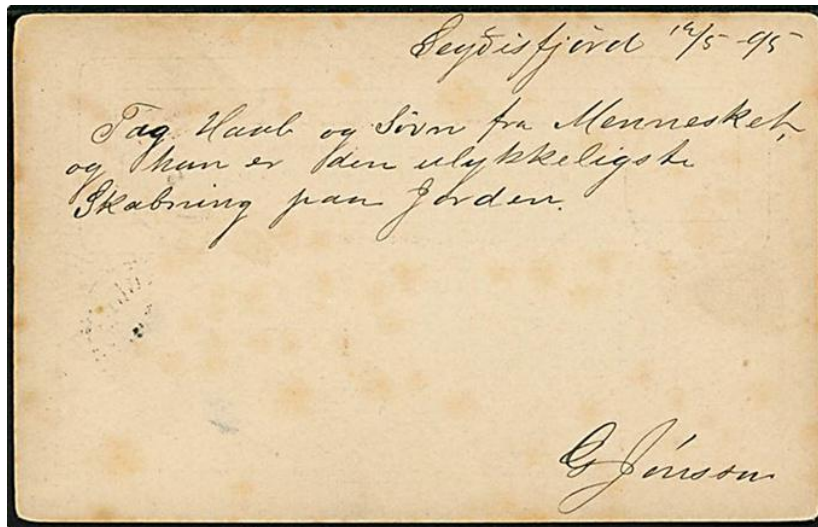 Seyðisfjörd 14/5 -95
Tag Haab og Søvn fra Mennesket,
og han er den ulykkeligste
Skabning paa Jorden.
G Jónsson